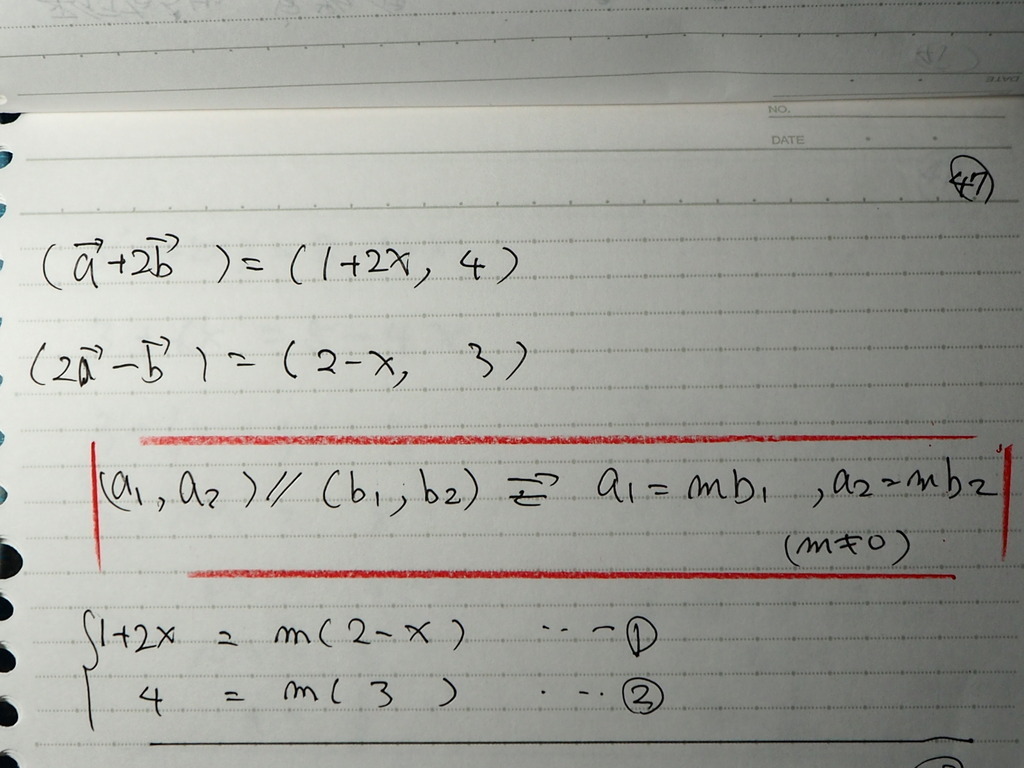 NO.
DATE
47
(a⃗+2b⃗) = (1+2x, 4)
(2a⃗-b⃗) = (2-x, 3)
(a₁, a₂) // (b₁, b₂) ⇄ a₁ = mb₁, a₂ = mb₂
(m≠0)
{1+2x = m(2-x) ... ①
4 = m(3) ... ②